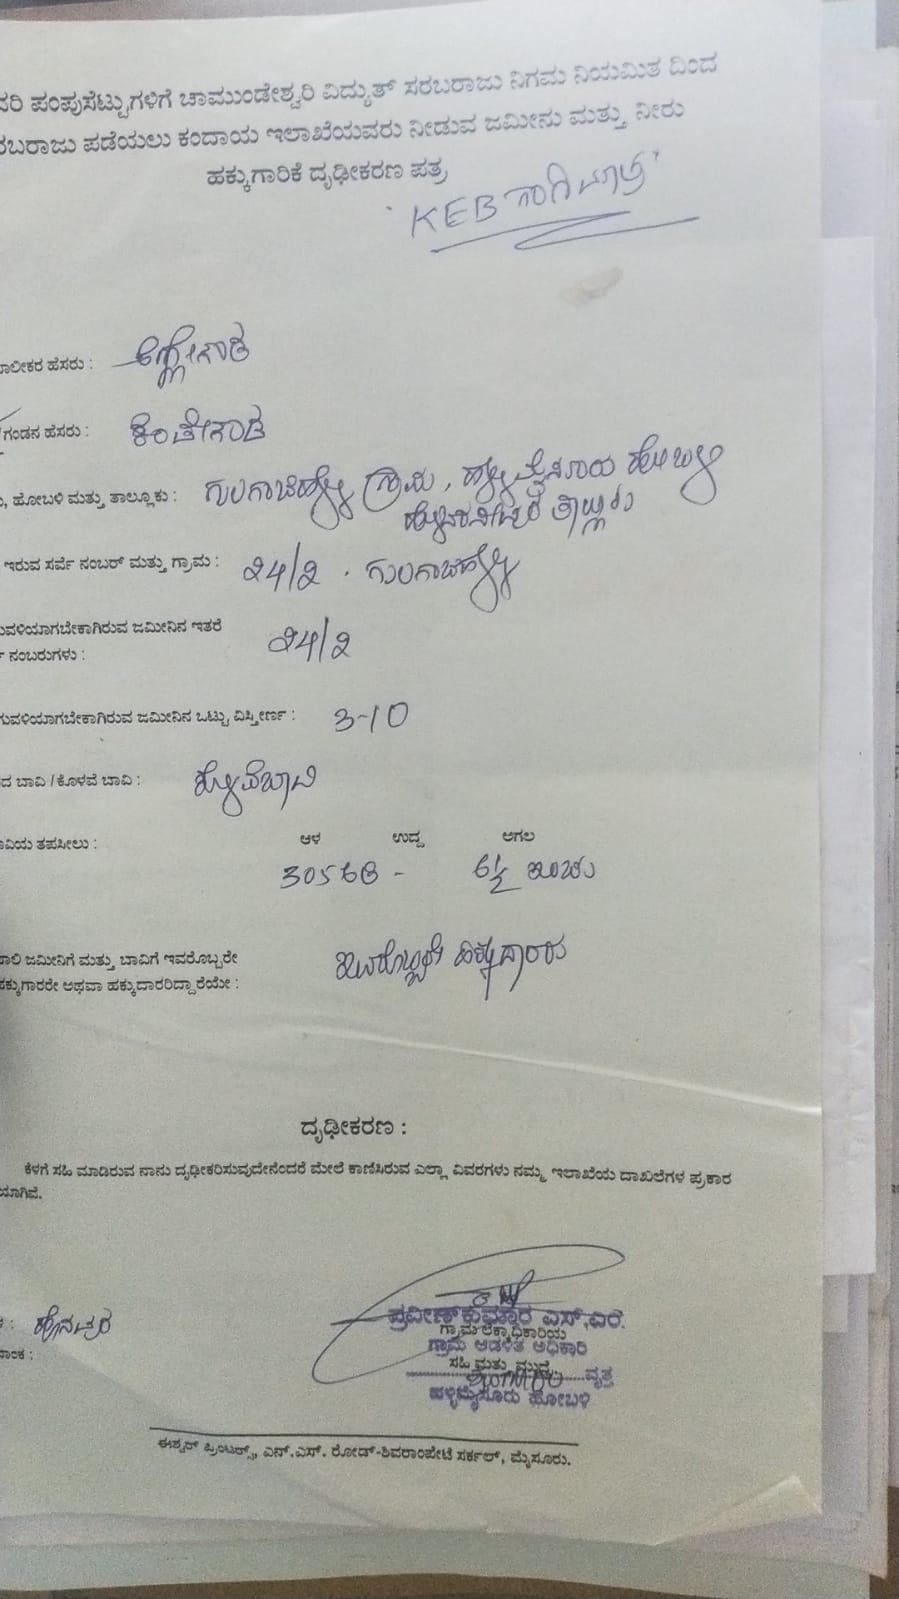 ವರಿ ಪಂಪುಸೆಟ್ಟುಗಳಿಗೆ ಚಾಮುಂಡೇಶ್ವರಿ ವಿದ್ಯುತ್ ಸರಬರಾಜು ನಿಗಮ ನಿಯಮಿತ ದಿಂದ
ರಬರಾಜು ಪಡೆಯಲು ಕಂದಾಯ ಇಲಾಖೆಯವರು ನೀಡುವ ಜಮೀನು ಮತ್ತು ನೀರು
ಹಕ್ಕುಗಾರಿಕೆ ದೃಢೀಕರಣ ಪತ್ರ
KEB ಗಾಗಿ ಮಾತ್ರ
ಾಲೀಕರ ಹೆಸರು :
/ಗಂಡನ ಹೆಸರು : ಕೆಂಚೇಗೌಡ
, ಹೋಬಳಿ ಮತ್ತು ತಾಲ್ಲೂಕು : ಗ್ರಾಮ, ಹಳ್ಳಿಮೈಸೂರು ಹೋಬಳಿ
ಹೊಳೆನರಸೀಪುರ ತಾಲ್ಲೂಕು
ಇರುವ ಸರ್ವೆ ನಂಬರ್ ಮತ್ತು ಗ್ರಾಮ : 24/2 .
ುವಳಿಯಾಗಬೇಕಾಗಿರುವ ಜಮೀನಿನ ಇತರೆ
ನಂಬರುಗಳು : 24/2
ಗುವಳಿಯಾಗಬೇಕಾಗಿರುವ ಜಮೀನಿನ ಒಟ್ಟು ವಿಸ್ತೀರ್ಣ : 3-10
ದ ಬಾವಿ / ಕೊಳವೆ ಬಾವಿ : ಕೊಳವೆಬಾವಿ
ಾವಿಯ ತಪಸೀಲು : ಆಳ ಉದ್ದ ಅಗಲ
305 ಅಡಿ - 6½ ಇಂಚು
ಾಲಿ ಜಮೀನಿಗೆ ಮತ್ತು ಬಾವಿಗೆ ಇವರೊಬ್ಬರೇ
ಹಕ್ಕುಗಾರರೇ ಅಥವಾ ಹಕ್ಕುದಾರರಿದ್ದಾರೆಯೇ : ಇವರೊಬ್ಬರೇ ಹಕ್ಕುದಾರರು
ದೃಢೀಕರಣ :
ಕೆಳಗೆ ಸಹಿ ಮಾಡಿರುವ ನಾನು ದೃಢೀಕರಿಸುವುದೇನೆಂದರೆ ಮೇಲೆ ಕಾಣಿಸಿರುವ ಎಲ್ಲಾ ವಿವರಗಳು ನಮ್ಮ ಇಲಾಖೆಯ ದಾಖಲೆಗಳ ಪ್ರಕಾರ
ಯಾಗಿವೆ.
ಪ್ರವೀಣ್ ಕುಮಾರ ಎಸ್.ಎಲ್.
ಗ್ರಾಮ ಲೆಕ್ಕಾಧಿಕಾರಿಯ
ಗ್ರಾಮ ಆಡಳಿತ ಅಧಿಕಾರಿ
ಸಹಿ ಮತ್ತು ಮುದ್ರೆ
ವೃತ್ತ
ಾಂಕ :
ಹಳ್ಳಿಮೈಸೂರು ಹೋಬಳಿ
ಈಶ್ವರ್ ಪ್ರಿಂಟರ್ಸ್, ಎನ್.ಎಸ್. ರೋಡ್-ಶಿವರಾಂಪೇಟೆ ಸರ್ಕಲ್, ಮೈಸೂರು.